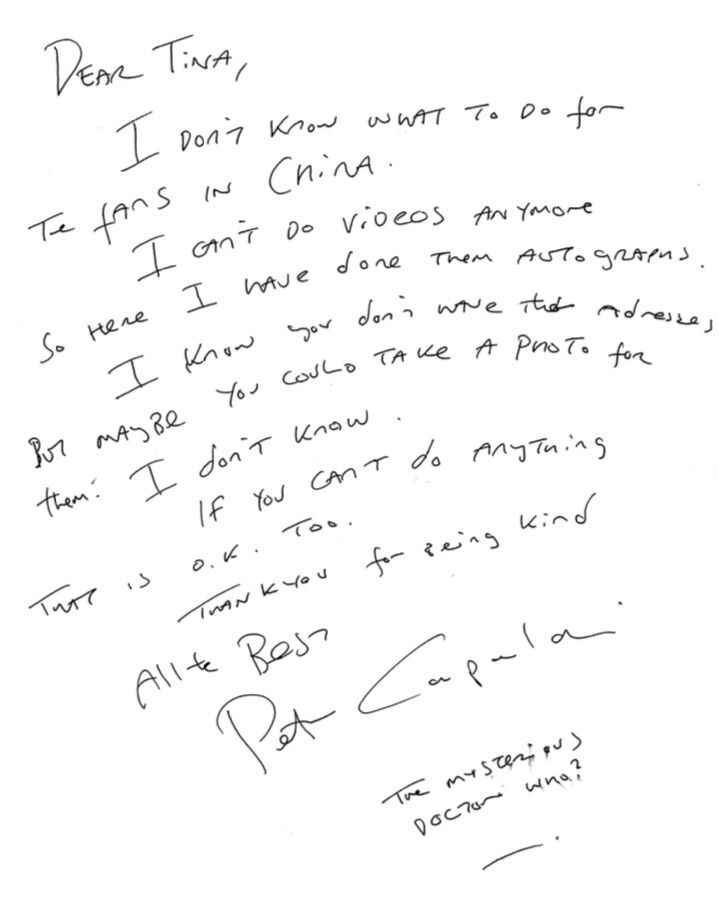 DEAR TINA,
I DON'T KNOW WHAT TO DO for
THE fANS IN CHINA.
I CAN'T DO VIDEOS ANYMORE
So HERE I HAVE done THEM AUTOGRAPHS.
I KNOW you don't HAVE the Adresses,
BUT MAYBE YOU COULD TAKE A PHOTO for
them. I don't KNOW.
IF YOU CAN'T do ANYTHING
THAT IS O.K. TOO.
THANKYOU for Being kind
All the BEST
Peter Capaldi
THE MYSTERIOUS
DOCTOR WHO?